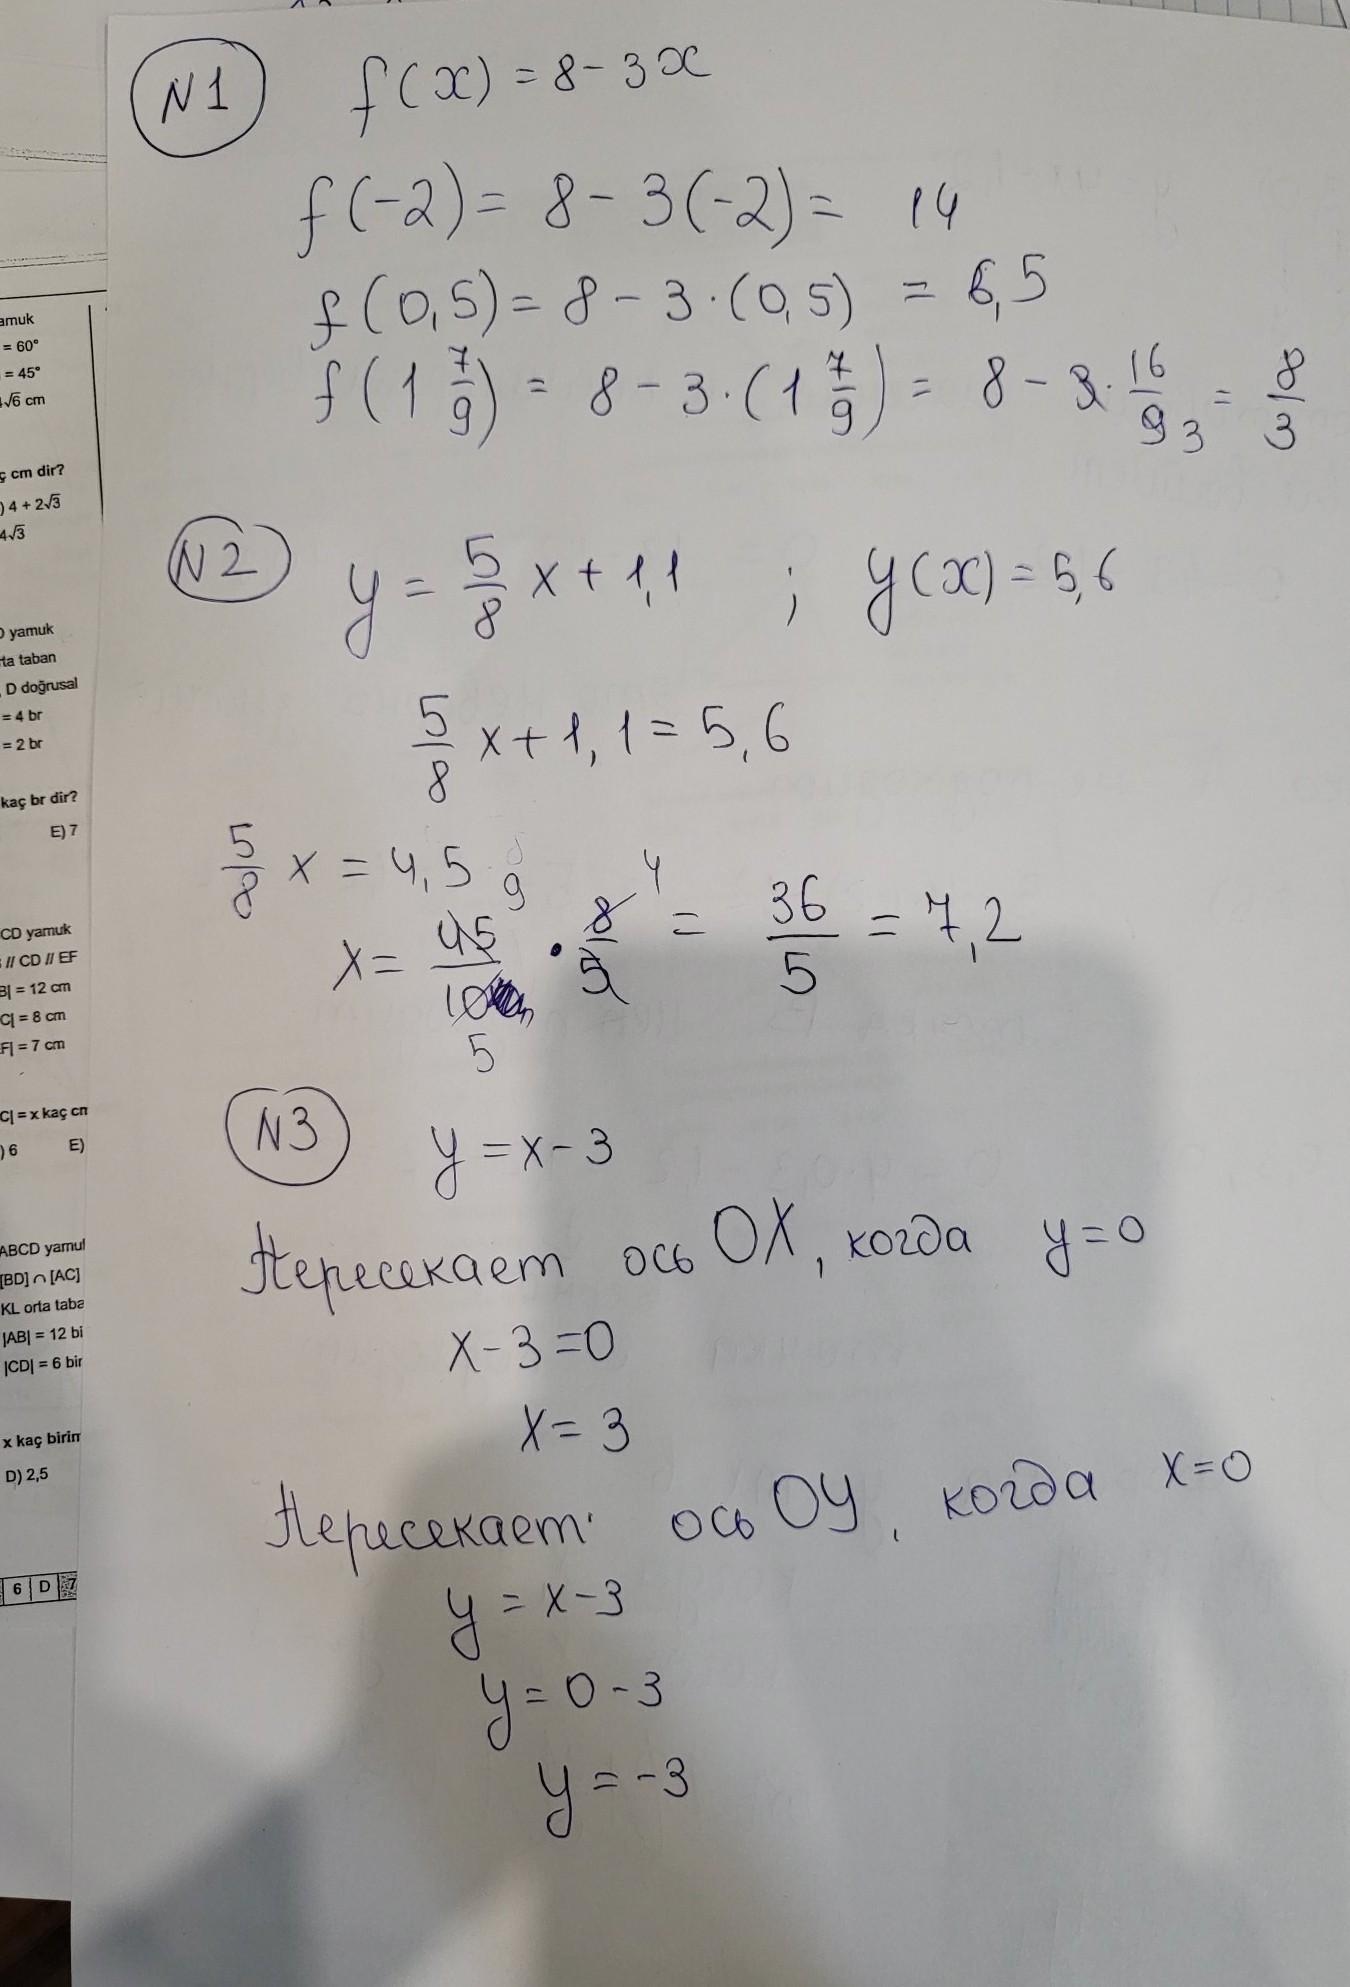 amuk
= 60°
= 45°
√6 cm
ç cm dir?
) 4 + 2√3
4√3
yamuk
rta taban
, D doğrusal
= 4 br
= 2 br
kaç br dir?
E) 7
CD yamuk
// CD // EF
B| = 12 cm
C| = 8 cm
F| = 7 cm
C| = x kaç cm
) 6 E)
ABCD yamuk
[BD] ∩ [AC]
KL orta taba
|AB| = 12 bi
|CD| = 6 bir
x kaç birim
D) 2,5
6 D 7
N1 f(x) = 8 - 3x
f(-2) = 8 - 3(-2) = 14
f(0,5) = 8 - 3·(0,5) = 6,5
f(1 7/9) = 8 - 3·(1 7/9) = 8 - 3·16/9 3 = 8/3
N2 y = 5/8 x + 1,1 ; y(x) = 5,6
5/8 x + 1,1 = 5,6
5/8 x = 4,5
x = 45/10 9 5 · 8/5 4 = 36/5 = 7,2
N3 y = x - 3
Пересекает ось OX, когда y = 0
x - 3 = 0
x = 3
Пересекает ось OY, когда x = 0
y = x - 3
y = 0 - 3
y = -3